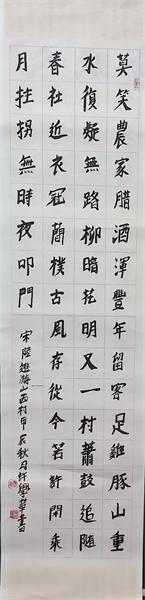 莫笑農家腊酒渾豐年留客足雞豚山重
水復疑無路柳暗花明又一村蕭鼓追隨
春社近衣冠簡樸古風存從今若許閑乘
月拄拐無時夜叩門
宋陸遊游山西村甲辰秋月許學華書